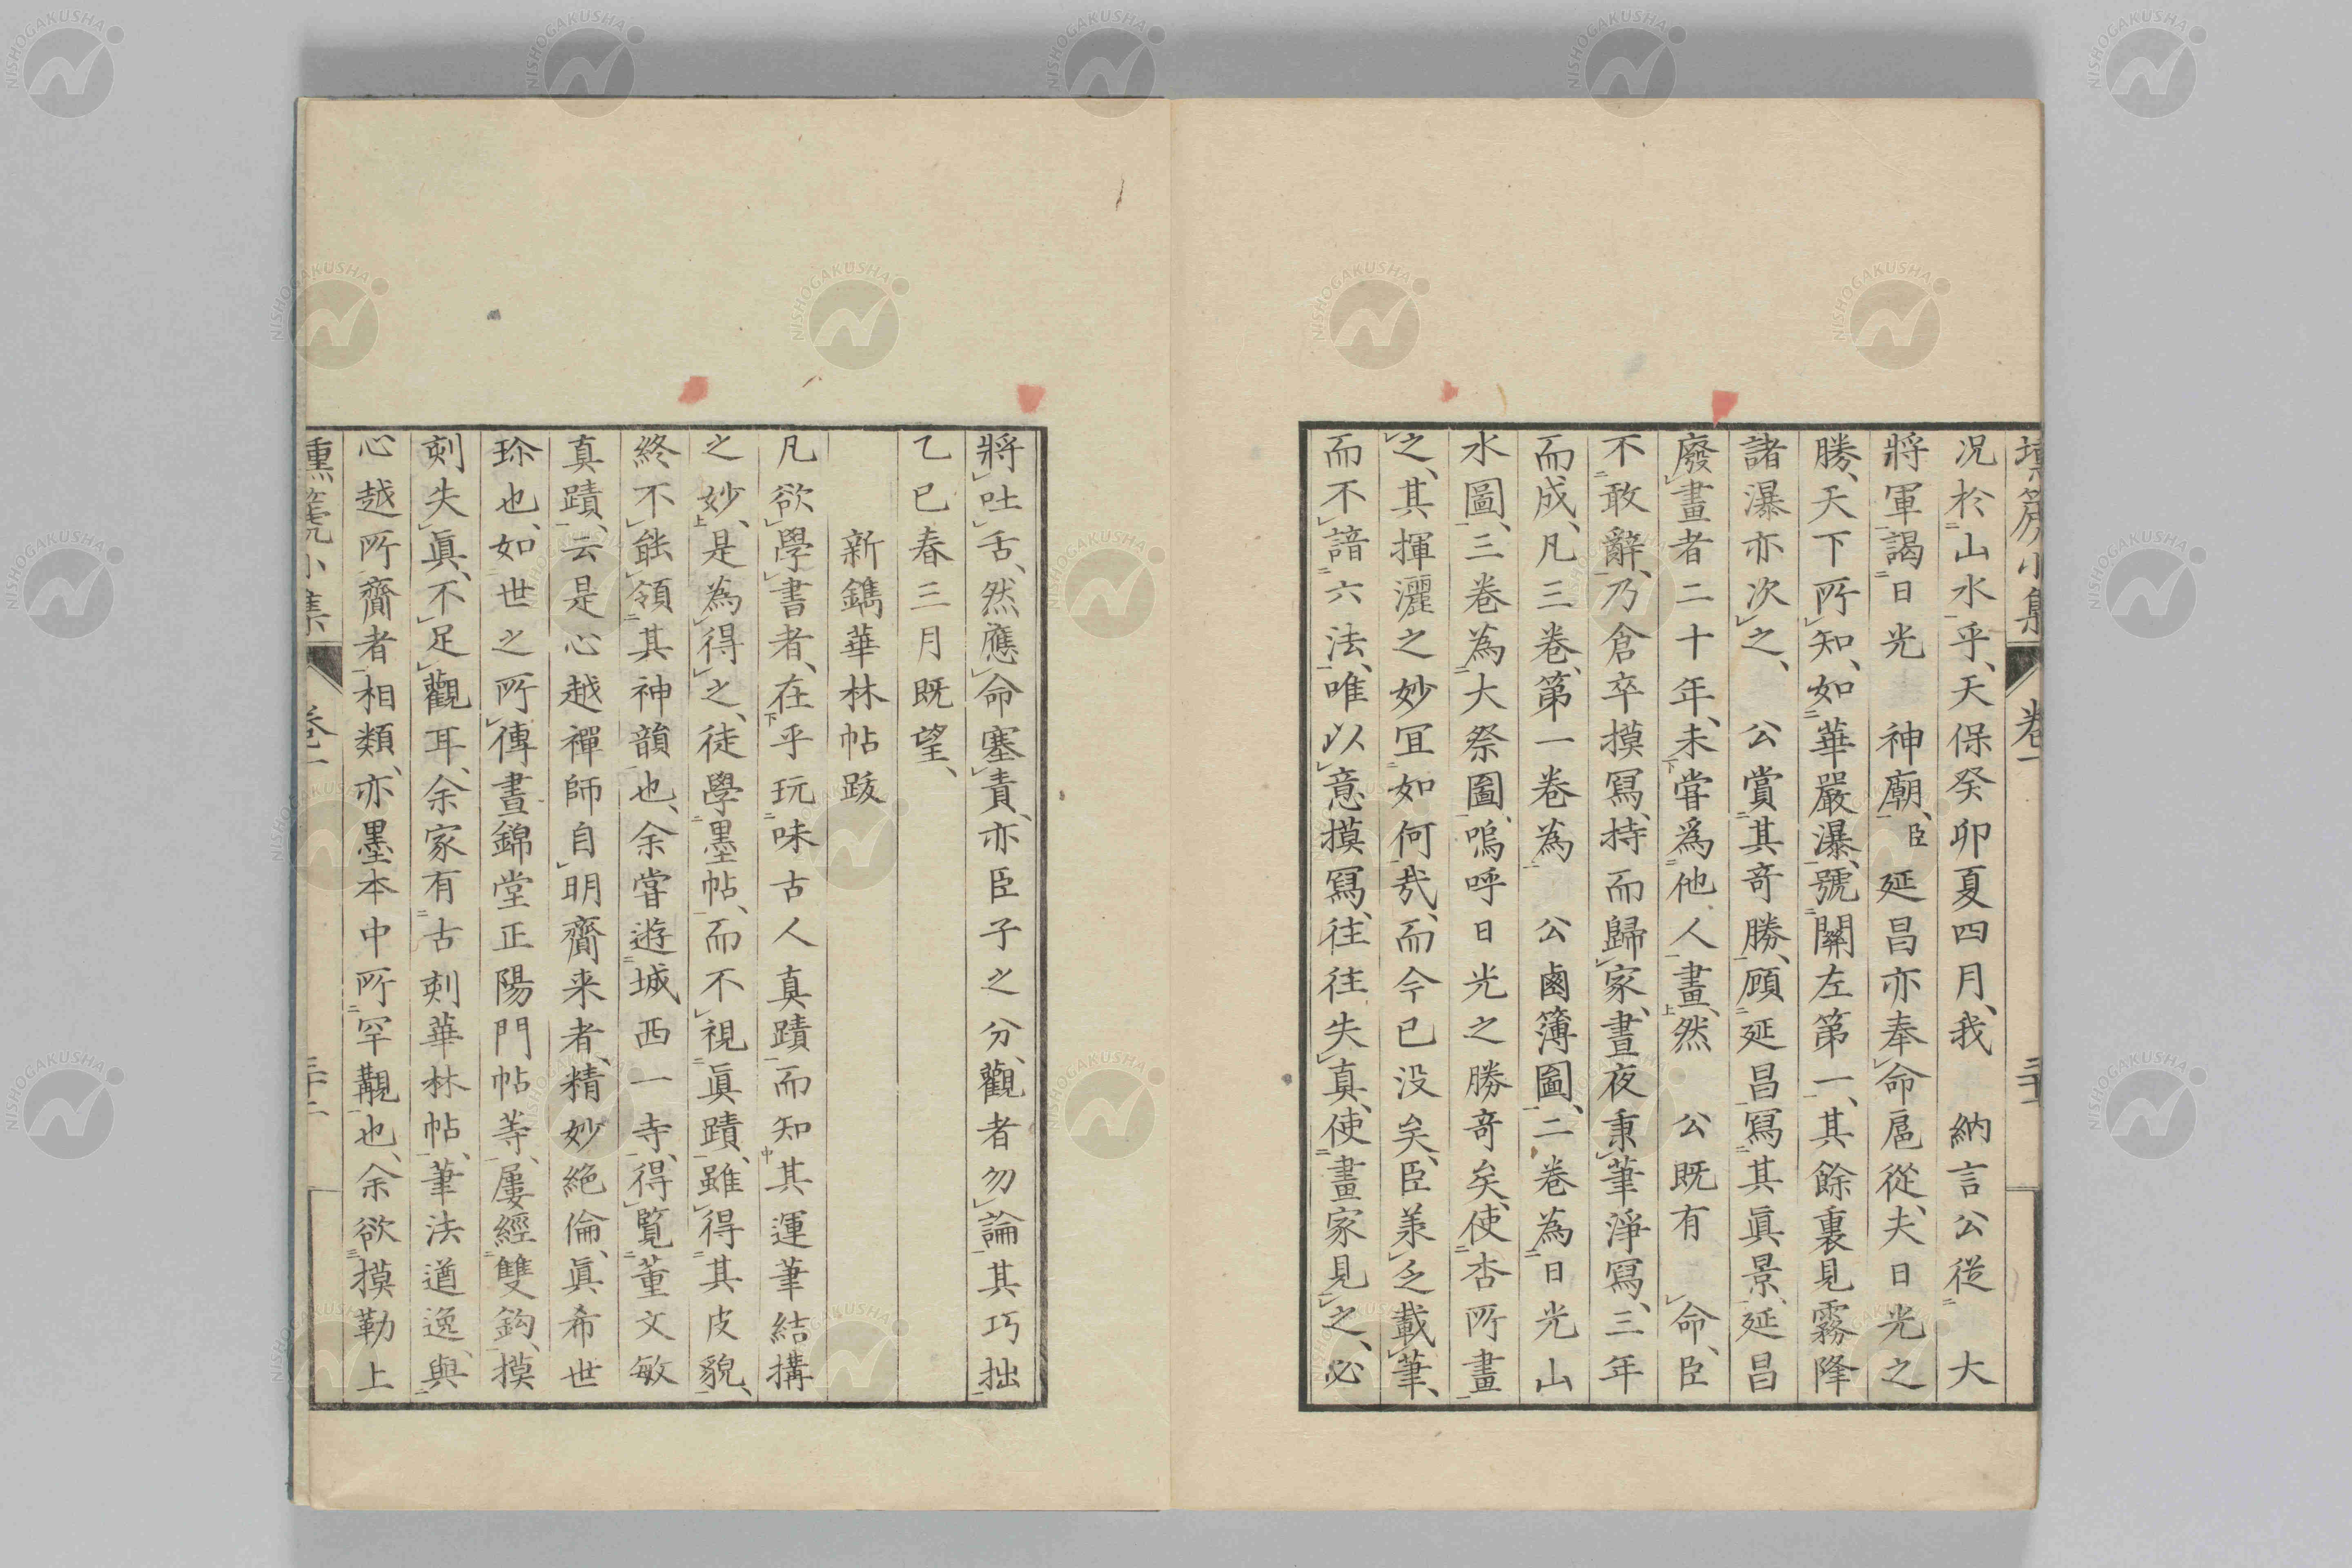 況於山水乎、天保癸卯夏四月、我　納言公從　大
將軍謁日光　神廟、臣延昌亦奉命扈從、夫日光之
勝、天下所知、如華嚴瀑、號關左第一、其餘裏見霧降
諸瀑亦次之、　公賞其奇勝、顧延昌寫其眞景、延昌
廢畫者二十年、未嘗爲他人畫、然　公既有　命、臣
不敢辭、乃倉卒摸寫、持而歸家、晝夜秉筆淨寫、三年
而成、凡三卷、第一卷為　公鹵簿圖、二卷為日光山
水圖、三卷為大祭圖、嗚呼日光之勝奇矣、使杏所畫
之、其揮灑之妙冝如何哉、而今已没矣、臣羕乏載筆、
而不諳六法、唯以意摸寫、往往失真、使畫家見之、必
壎箎小集　卷一
將吐舌、然應命塞責、亦臣子之分、觀者勿論其巧拙
乙巳春三月既望、
新鐫華林帖跋
凡欲學書者、在乎玩味古人真蹟而知其運筆結搆
之妙、是為得之、徒學墨帖、而不視眞蹟、雖得其皮貌、
終不能領其神韻也、余嘗遊城西一寺、得覧董文敏
真蹟、云是心越禪師自明齎来者、精妙絶倫、眞希世
珎也、如世之所傳晝錦堂正陽門帖等、屢經雙鈎、摸
刻失眞、不足觀耳、余家有古刻華林帖、筆法遒逸、與
心越所齎者相類、亦墨本中所罕覯也、余欲摸勒上
壎箎小集　卷一